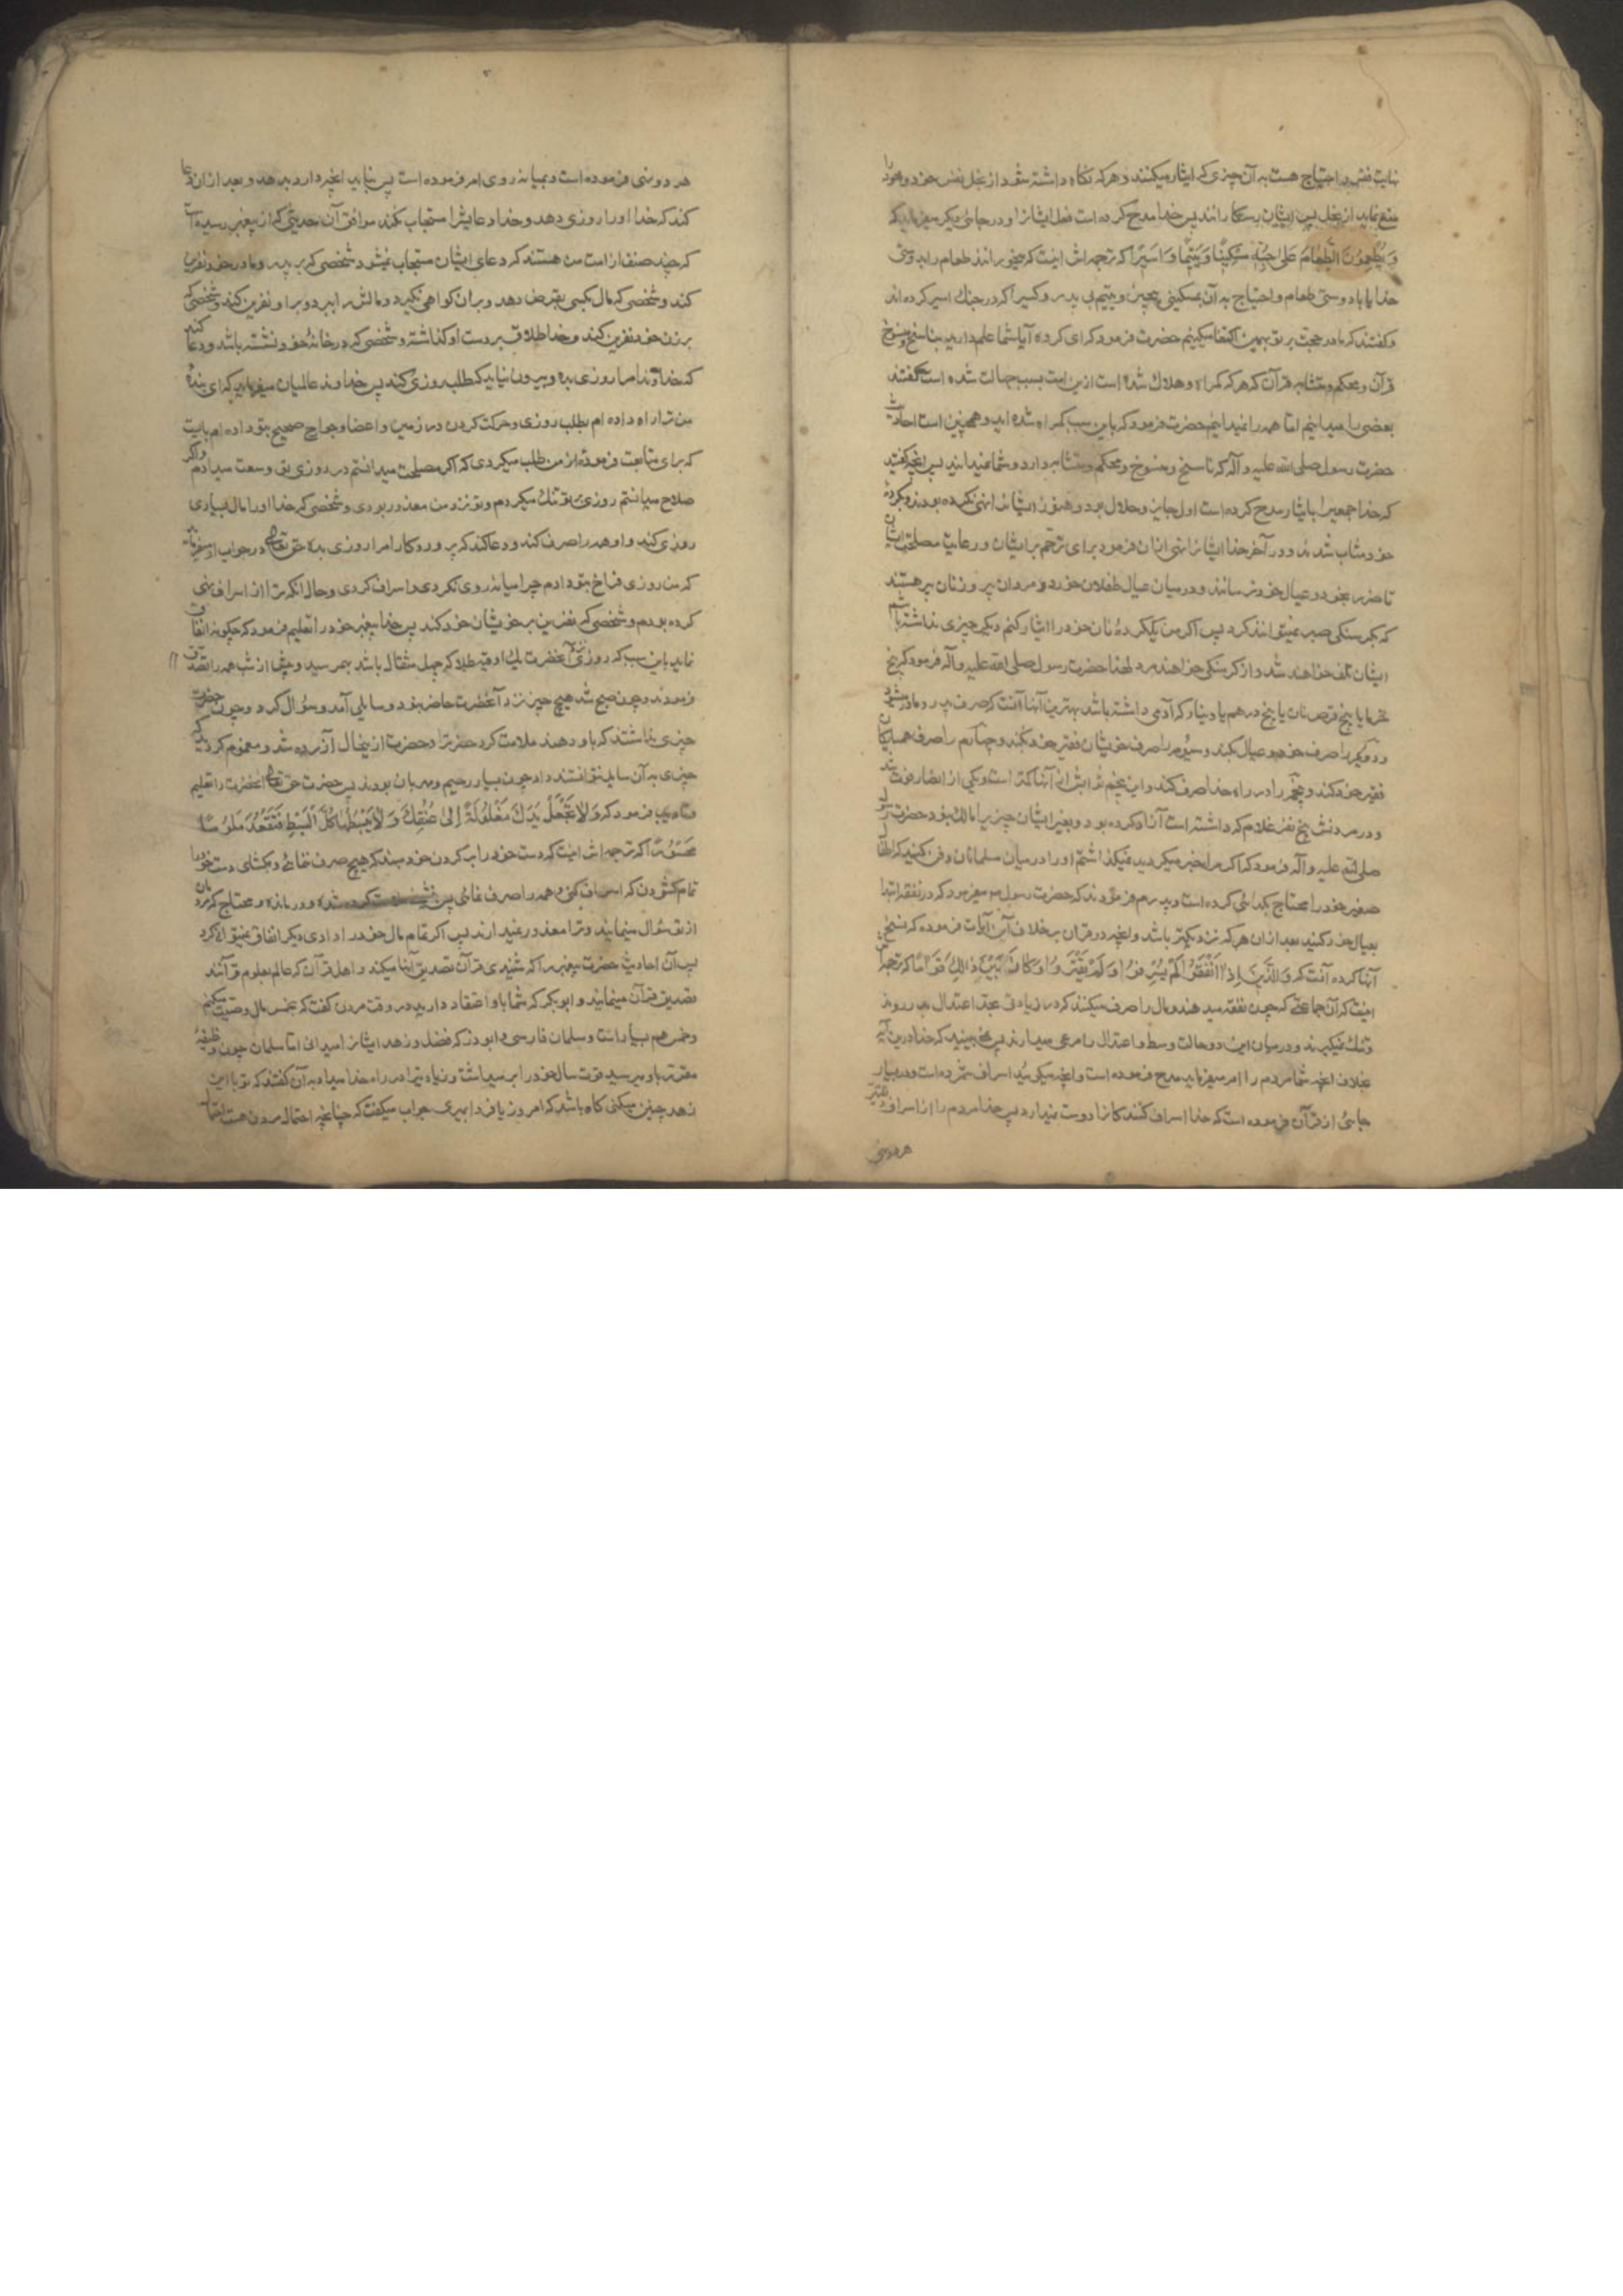 نهایت فقر و احتیاج هست به آن چیزی که ایثار میکنند و هر که نگاه داشته شود از بخل نفس خود و خود را
منع نماید از بخل پس ایشان رستگارانند پس خدا مدح کرده است فعل ایشانرا و در جائی دیگر میفرماید که
وَیُطْعِمُونَ الطَّعَامَ عَلیٰ حُبِّهِ مِسْکِینًا وَیَتِیمًا وَاَسِیرًا که ترجمه‌اش اینست که میخورانند طعام را بدوستی
خدا یا با دوستی طعام و احتیاج به آن بمسکینی بیچیز و یتیم بی پدر و کسیرا که در جنگ اسیر کرده اند
و گفتند که ما در حجت بر تو بهمین اکتفا میکنیم حضرت فرمود که ای کرده آیا شما علم دارید بناسخ و منسوخ
قرآن و محکم و متشابه قرآن که هر که گمراه و هلاک شده است ازین امت بسبب جهالت شده است گفتند
بعضی را میدانیم اما همه را نمیدانیم حضرت فرمود که باین سبب گمراه شده اید و همچنین است احادیث
حضرت رسول صلی الله علیه و آله که ناسخ و منسوخ و محکم و متشابه دارد و شما نمیدانید پس آنچه گفتید
که خدا جمعیرا بایثار مدح کرده است اول جایز و حلال بود و هنوز ایشانرا نهی نکرده بودند و بکرده
خود مثاب شدند و در آخر خدا ایشانرا نهی ازان فرمود برای ترحم بر ایشان و رعایت مصلحت ایشان
تا ضرر بخود و عیال خود نرسانند و در میان عیال طفلان خورد و مردان پیر و زنان پیر هستند
که بگرسنگی صبر نمیتوانند کرد پس اگر من یک گرده نان خود را ایثار کنم و دیگر چیزی نداشته باشم
ایشان تلف خواهند شد و از گرسنگی خواهند مرد لهذا حضرت رسول صلی الله علیه و آله فرمود که پنج
خرما یا پنج قرص نان یا پنج درهم یا دینار که آدمی داشته باشد بهترین آنها آنست که صرف پدر و مادر شود
و دویم را صرف خود و عیال بکند و سیوم را صرف خویشان فقیر خود بکند و چهارم را صرف همسایگان
فقیر خود کند و پنجم را در راه خدا صرف کند و این پنجم ثوابش از آنها کمتر است و یکی از انصار فوت شد
و در مردنش پنج نفر غلام که داشته است آزاد کرده بود و بغیر ایشان چیزیرا مالک نبود حضرت رسول
صلی الله علیه و آله فرمود که اگر مرا خبر میکردید نمیگذاشتم او را در میان مسلمانان دفن کنید که اطفال
صغیر خود را محتاج بگدائی کرده است و پدرم فرمودند که حضرت رسول میفرمود که در نفقه ابتدا
بعیال خود کنید بعد ازان هر که نزدیکتر باشد و آنچه در قرآن بر خلاف آن آیات فرموده که نسخ
آنها کرده آنست که وَالَّذِینَ اِذَا اَنْفَقُوا لَمْ یُسْرِفُوا وَلَمْ یَقْتُرُوا وَکَانَ بَیْنَ ذٰلِکَ قَوَامًا که ترجمه‌اش
اینست که آن جماعتی که چون نفقه میدهند و مال را صرف میکنند که در زیادتی بحد اعتدال بدر روند
و تنگ نمیگیرند و در میان این دو حالت وسط و اعتدال را مرعی میدارند پس نمی بینید که خدا درین آیه
بخلاف آنچه شما مردم را امر میفرمایید مدح فرموده است و آنچه میگوئید اسراف شمرده است و در بسیار
جائی از قرآن فرموده است که خدا اسراف کنندگانرا دوست نمیدارد پس خدا مردم را از اسراف و تقتیر
هر دو نهی
هر دو نهی فرموده است و بمیانه روی امر فرموده است پس نباید آنچه دارد بدهد و بعد ازان دعا
کند که خدا او را روزی دهد و خدا دعایشرا مستجاب نکند موافق آن حدیثی که از پیغمبر رسیده است
که چند صنف از امت من هستند که دعای ایشان مستجاب نمیشود شخصی که بر پدر و مادر خود نفرین
کند و شخصی که مال بکسی بقرض دهد و بران گواهی نگیرد و مالش را ببرد و بر او نفرین کند و شخصی که
بر زن خود نفرین کند و خدا طلاق بدست او گذاشته و شخصی که در خانهٔ خود نشسته باشد و دعا کند
که خداوندا مرا روزی بده و بیرون نیاید که طلب روزی کند پس خداوند عالمیان میفرماید که ای بندهٔ
من ترا راه داده ام بطلب روزی و حرکت کردن در زمین و اعضا و جوارح صحیح بتو داده ام بایست
که برای متابعت فرموده از من طلب میکردی که اگر مصلحت میدانستم در روزی تو وسعت میدادم و اگر
صلاح میدانستم روزی بر تو تنگ میکردم و تو نزد من معذور بودی و شخصی که خدا او را مال بسیاری
روزی کند و او همه را صرف کند و دعا کند که پروردگارا مرا روزی بده حق تعالی در جواب او میفرماید
که من روزی فراخ بتو دادم چرا میانه روی نکردی و اسراف کردی و حال آنکه ترا از اسراف نهی
کرده بودم و شخصی که نفرین بر خویشان خود کند پس خدا پیغمبر خود را تعلیم فرمود که چگونه انفاق
نماید باین سبب که روزی نزد آنحضرت یک اوقیه طلا که چهل مثقال باشد بهمرسید و پیش از شب همه را تصدق
فرمودند و چون صبح شد هیچ چیز نزد آنحضرت حاضر نبود و سایلی آمد و سؤال کرد و چون حضرت
چیزی نداشتند که باو دهند ملامت کرد حضرترا و حضرت ازینحال آزرده شد و مغموم گردید که
چیزی به آن سایل نتوانستند داد چون بسیار رحیم و مهربان بودند پس حضرت حق تعالی آنحضرت را تعلیم
و تادیب فرمود که وَلاَ تَجْعَلْ یَدَکَ مَغْلُولَةً اِلیٰ عُنُقِکَ وَلاَ تَبْسُطْهَا کُلَّ الْبَسْطِ فَتَقْعُدَ مَلُومًا
مَحْسُورًا که ترجمه‌اش اینست که دست خود را بگردن خود مبند که هیچ صرف ننمائی و مگشای دست خود را
تمام گشودن که اسراف کنی و همه را صرف نمائی پس و درمانده و محتاج که مردمان
از تو سؤال مینمایند و ترا معذور نمیدارند پس اگر تمام مال خود را دادی دیگر انفاق نمیتوانی کرد
پس آن احادیث حضرت پیغمبر را که شنیدی قرآن تصدیق آنها میکند و اهل قرآن که عالم بعلوم قرآنند
تصدیق قرآن مینمایند و ابوبکر که شما باو اعتقاد دارید در وقت مردن گفت که بخمس مال وصیت میکنم
و خمس هم بسیار است و سلمان فارسی و ابوذر که فضل و زهد ایشانرا میدانی اما سلمان چون وظیفهٔ
مقرر باو میرسید قوت سال خود را بر میداشت و زیادتیرا در راه خدا میداد به آن گفتند که تو با این
زهد چنین میکنی گاه باشد که امروز یا فردا بمیری جواب میگفت که چنانچه احتمال مردن هست احتمال